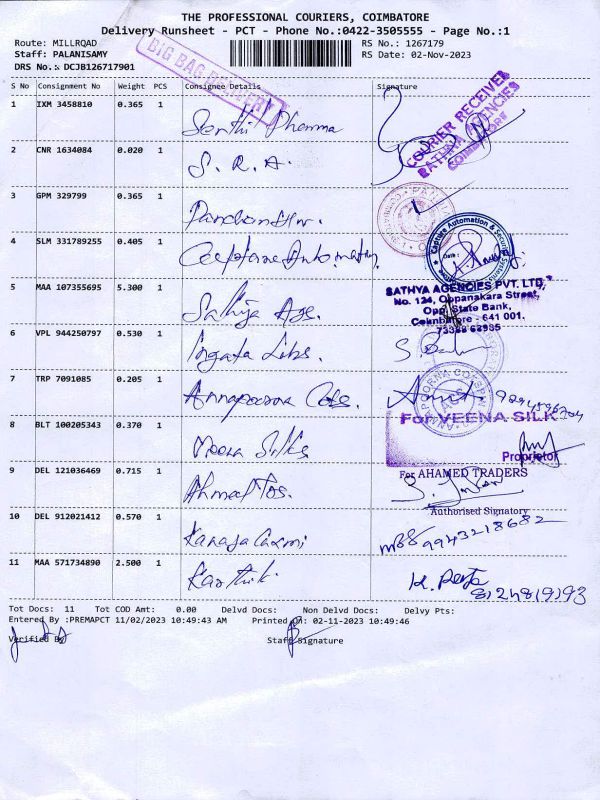 THE PROFESSIONAL COURIERS, COIMBATORE
Delivery Runsheet - PCT - Phone No.:0422-3505555 - Page No.:1
Route: MILLRQAD
RS No.: 1267179
Staff: PALANISAMY
RS Date: 02-Nov-2023
DRS No.: DCJB126717901
BIG BAG DELIVERY
S No Consignment No Weight PCS Consignee Details Signature
1 IXM 3458810 0.365 1 Senthil Pharma
COURIER RECEIVED
SATHYA AGENCIES
COIMBATORE
2 CNR 1634084 0.020 1 S. R. A.
3 GPM 329799 0.365 1
4 SLM 331789255 0.405 1 Capture Automation
Capture Automation & Security Systems
Date :
5 MAA 107355695 5.300 1 Sathya Ags.
SATHYA AGENCIES PVT. LTD.,
No. 124, Oppanakara Street,
Opp. State Bank,
Coimbatore - 641 001.
6 VPL 944250797 0.530 1
7 TRP 7091085 0.205 1 Annapoorna
8 BLT 100205343 0.370 1 Veena Silks
For VEENA SILK
Proprietor
9 DEL 121036469 0.715 1 Ahmed
For AHAMED TRADERS
Authorised Signatory
10 DEL 912021412 0.570 1 9943218682
11 MAA 571734890 2.500 1 Karthik. 8124819193
Tot Docs: 11 Tot COD Amt: 0.00 Delvd Docs: Non Delvd Docs: Delvy Pts:
Entered By :PREMAPCT 11/02/2023 10:49:43 AM Printed On: 02-11-2023 10:49:46
Verified By Staff Signature